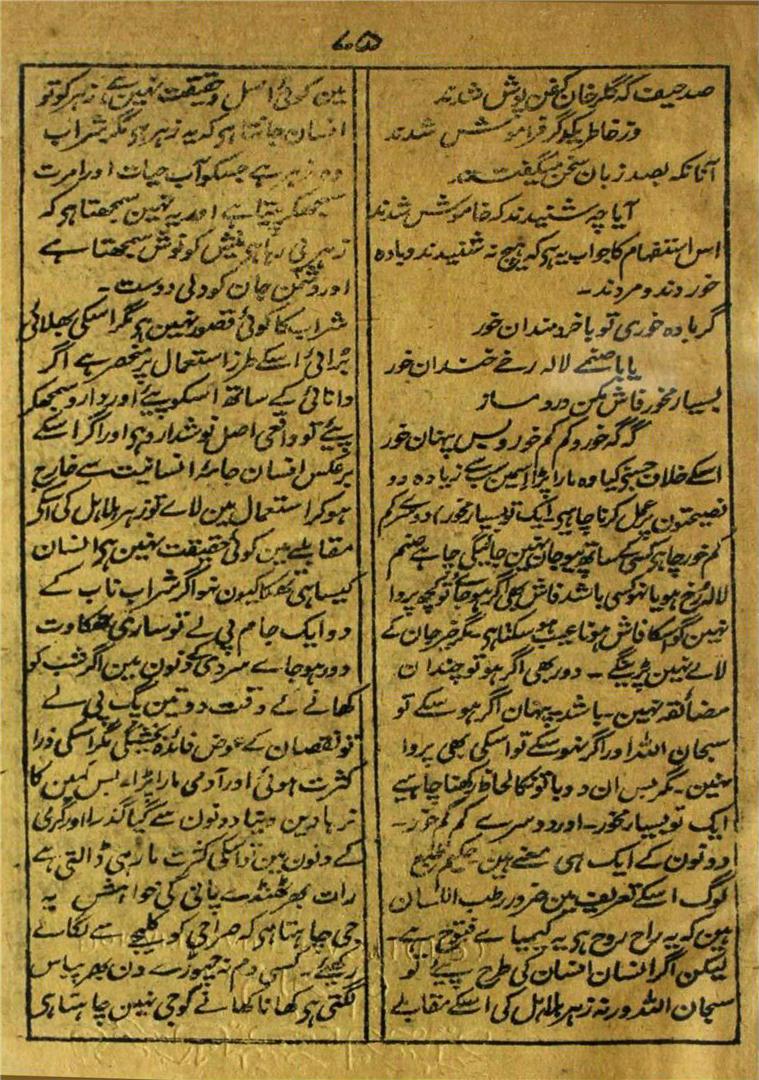 ۶۰۵
صد حیف که گلرخان کفن پوش شدند
وز خاطر یکدگر فراموش شدند
آنانکه بصد زبان سخن میگفتند
آیا چه شنیدند که خاموش شدند
اس استفہام کا جواب یہ ہی کہ ہیچ نہ شنیدند و بادہ
خوردند و مردند ۔
گر بادہ خوری تو با خردمندان خور
یا با صنمے لالہ رخے خندان خور
بسیار مخور فاش مکن ورد مساز
گہ گہ خور و کم کم خور و پس پنہان خور
اسکے خلاف جسنے کیا وہ مارا پڑا اسمین سب سے زیادہ دو
نصیحتون پر عمل کرنا چاہیے ایک تو بسیار مخور، دوسرے کم
کم خور چاہی کسی کے ساتھ ہو جان نہین جائیگی چاہے صنم
لالہ رخ ہو یا نہو کسی باشد فاش بھی اگر ہو جائے تو کچھ پروا
نہین گو اسکا فاش ہونا عیب ہو سکتا ہی مگر خیر جان کے
لالے نہین پڑینگے ۔ دور بھی اگر ہو تو چندان
مضائقہ نہین ۔ باشد پنہان اگر ہو سکے تو
سبحان اللہ اور اگر نہو سکے تو اسکی بھی پروا
نہین ۔ مگر بس ان دو باتونکا لحاظ رکھنا چاہیے
ایک تو بسیار مخور ۔ اور دوسرے کم کم خور ۔
دونون کے ایک ہی معنے ہین حکیم طبع
لوگ اسکے تعریف مین ضرور رطب اللسان
ہین کہ یہ راح روح ہی یہ کیمیاے فتوح ہے ۔
لیکن اگر انسان انسان کی طرح پیے تو
سبحان اللہ ورنہ زہر ہلاہل کی اسکے مقابلے
مین کوئی اصل و حقیقت نہین ہے، زہر کو تو
انسان جانتا ہی کہ یہ زہر ہی مگر شراب
وہ زہر ہے جسکو آب حیات اور امرت
سمجھکر پیتا ہے اور یہ نہین سمجھتا ہو کہ
زہر پی رہا ہو نیش کو نوش سمجھتا ہے
اور دشمن جان کو دلی دوست ۔
شراب کا کوئی قصور نہین ہی مگر اسکی بھلائی
برائی اسکے طرز استعمال پر منحصر ہے اگر
دانائی کے ساتھ اسکو پیے اور دارو سمجھکر
پیے تو واقعی اصل نوشدارو ہی اور اگر اسکے
برعکس انسان جامۂ انسانیت سے خارج
ہو کر استعمال مین لاے تو زہر ہلاہل کی اسکے
مقابلے مین کوئی حقیقت نہین ہی انسان
کیسا ہی تھکا کیون نہو اگر شراب ناب کے
دو ایک جام پی لے تو ساری تھکاوٹ
دور ہو جاے سردی کے دنون مین اگر شب کو
کھانے کے وقت دو تین پگ پی لے
تو نقصان کے عوض فائدہ بخشیگی مگر اسکی ذرا
کثرت ہوئی اور آدمی مارا پڑا، بس کہین کا
نرہا دین دنیا دونون سے گیا گذرا اور گرمی
کے دنون مین تو اسکی کثرت مار ہی ڈالتی ہے
رات بھر ٹھنڈے پانی کی خواہش یہ
جی چاہتا ہی کہ صراحی کو کلیجے سے لگائے
رکھیے ۔ کسی دم نہ چھوڑے دن بھر پیاس
لگتی ہی کھانا کھانے کو جی نہین چاہتا ہی